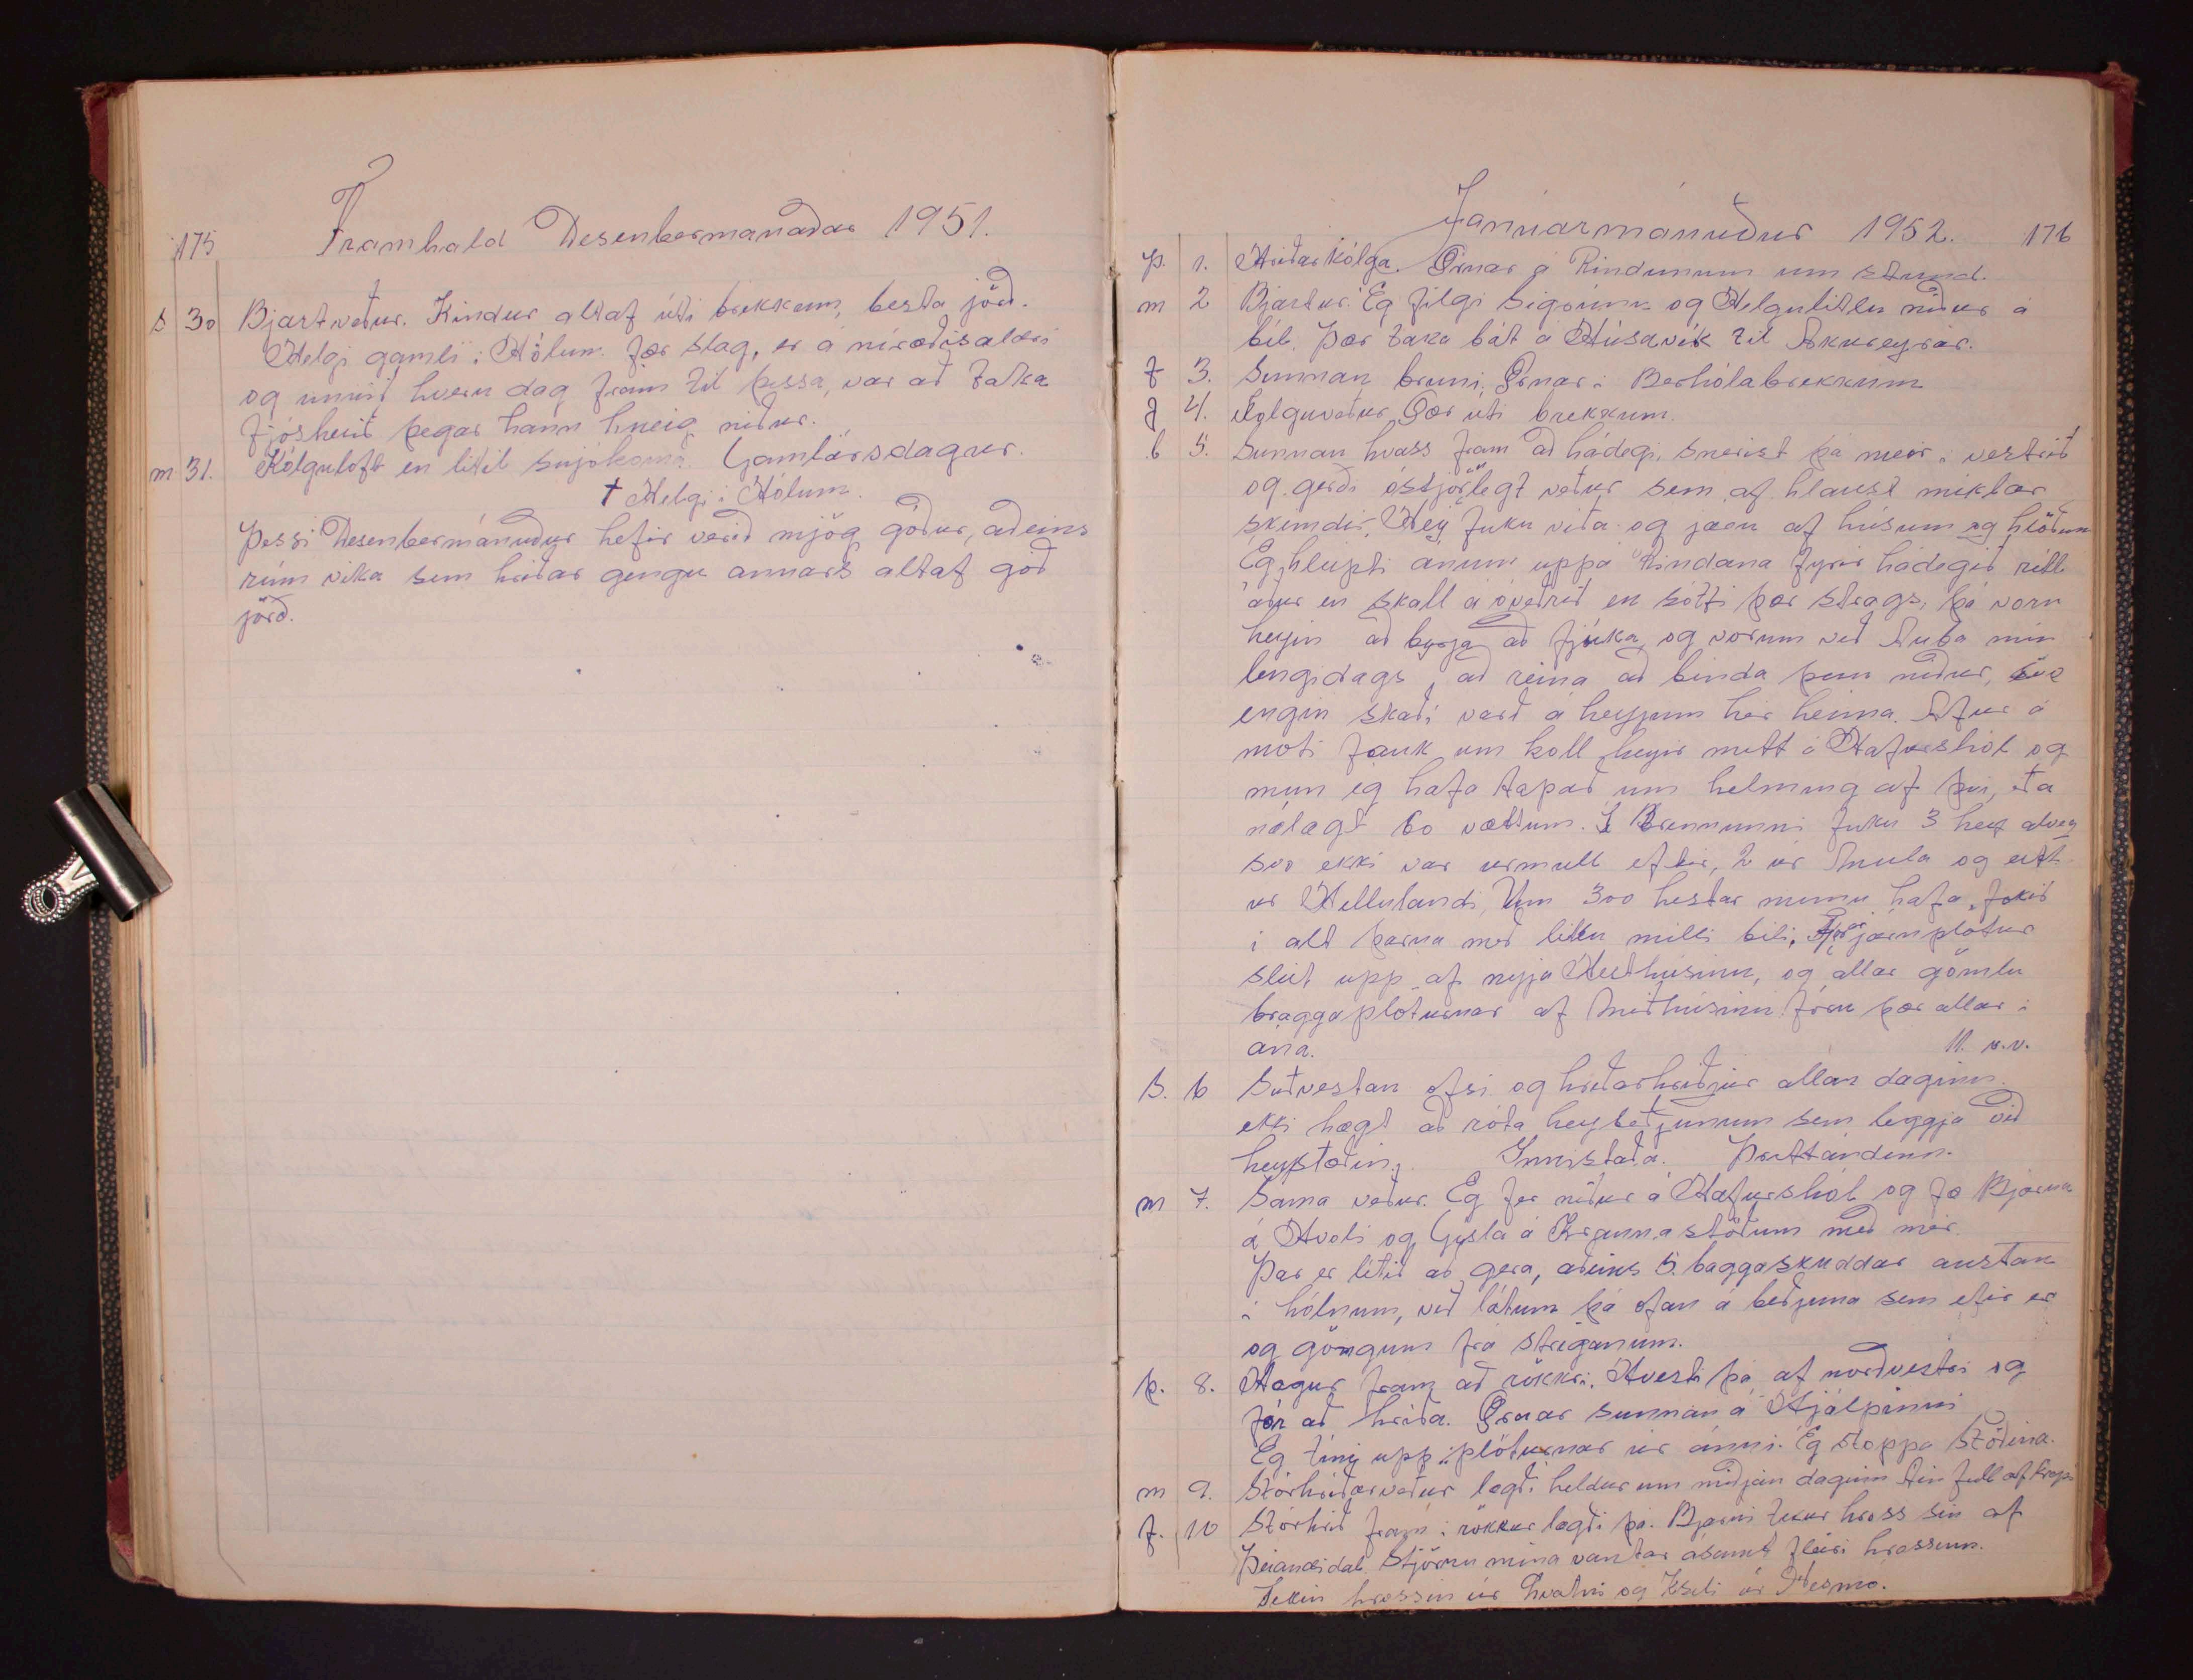 175
Framhald Desenbermanaðar 1951.
s 30 Bjartveður. Kindur altaf úti brekkum, besta jörð.
Helgi gamli í Hólum fær slag, er á níræðisaldri
og unnið hvern dag fram til þessa, var að taka
fjósheið þegar hann hneig niður.
m 31. Kólguloft en litil snjókoma. Gamlársdagur.
† Helgi í Hólum.
Þessi Desenbermánuður hefir verið mjög góður, aðeins
rúm vika sem hriðar gengu annars altaf góð
jörð.
Janúarmánuður 1952. 176
þ. 1. Hriðarkólga. Ærnar á Rindunum um stund.
m 2 Bjartur. Eg filgi Sigrúnu og Helgulitlu niður á
bíl. Þær taka bát á Húsavík til Akureyrar.
f 3. Sunnan bruni. Ærnar í Berhólabrekkum
f 4. Kólguveður, Ær úti brekkum.
l 5. Sunnan hvass fram að hádegi, snerist þá meir í vestrið
og gerði óstjórlegt veður sem af hlaust miklar
skemdir. Hey fuku viða og járn af húsum og hlöðum
Eg hleipti ánum uppá Rindana fyrir hádegið rétt
áður en skall á óveðrið en sótti þær strags, þá voru
heyin að byrja að fjúka og vorum við Auða mín
lengidags að reina að binda þau niður, svo
engin skaði varð á heyjum hér heima. Aftur á
moti fauk um koll heyið mitt á Hafurshól og
mun eg hafa tapað um helming af því, eða
nálagt 60 vættum. Í Brennunni fuku 3 hey alveg
svo ekki var urmull eftir, 2 úr Múla og eitt
úr Hellulandi, Um 300 hestar munu hafa fokið
í alt þarna með litlu milli bili. járnplötur
sleit upp af nyja Hesthúsinu, og allar gömlu
braggaplöturnar af Miðhúsinu fóru þær allar í
ána. 11. v.v.
S. 6 Suðvestan ofsi og hriðarhriðjur allan daginn.
ekki hægt að róta heybeðjunum sem leggja við
heystæðin. Innistaða. Þrettándinn.
m 7. Sama veður. Eg fer niður á Hafurshól og fæ Bjarna
á Hvoli og Gísla á Kraunastöðum með mér.
Þar er lítið að gera, aðeins 5. baggaskuddar austan
í hólnum, við látum þá ofan á beðjuna sem eftir er
og göngum frá striganum.
þ. 8. Hægur fram að rökkri. Hvesti þá af norðvestri og
fór að hriða. Ærnar sunnan á Hjálpinni
Eg tíni upp plöturnar úr ánni. Eg stoppa Stöðina.
m 9. Stórhriðarveður lægði heldur um miðjan daginn Áin full af krapi
f. 10 Stórhrið fram í rökkur lægði þá. Bjarni tekur hross sín af
Þeiandidal. Stjörnu mína vantar ásamt fleiri hrossum.
Tekin hrossin úr Hvatni og Kseli úr Nesmo.